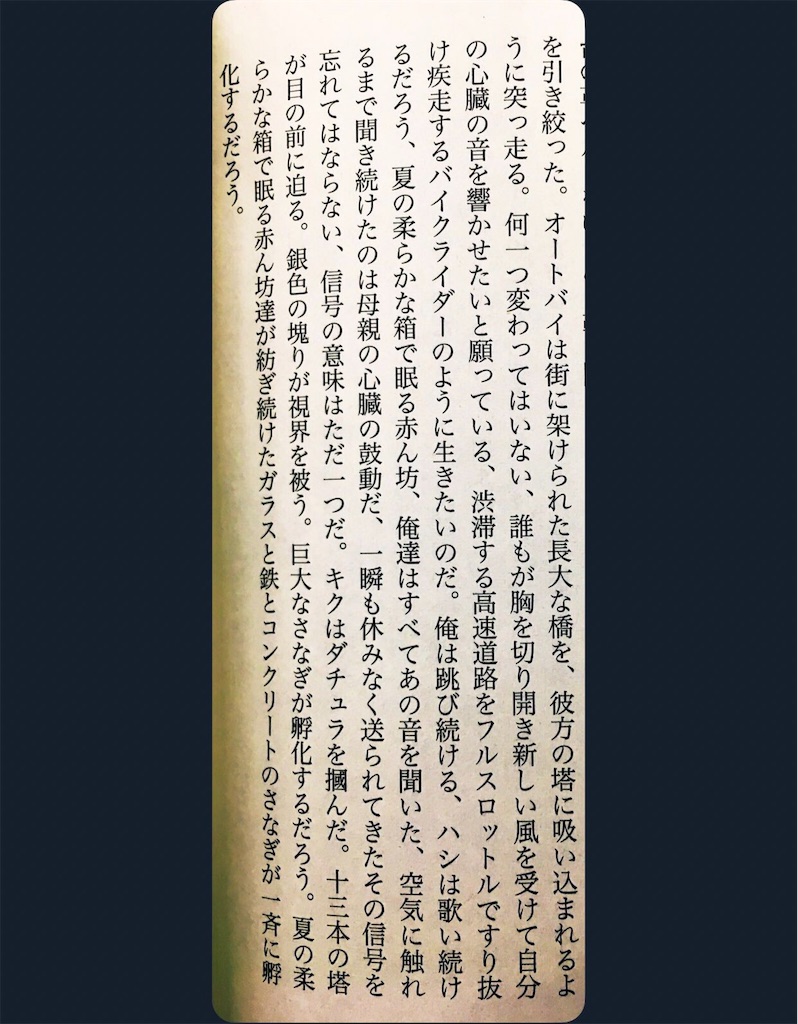 を引き絞った。オートバイは街に架けられた長大な橋を、彼方の塔に吸い込まれるよ
うに突っ走る。何一つ変わってはいない、誰もが胸を切り開き新しい風を受けて自分
の心臓の音を響かせたいと願っている、渋滞する高速道路をフルスロットルですり抜
け疾走するバイクライダーのように生きたいのだ。俺は跳び続ける、ハシは歌い続け
るだろう、夏の柔らかな箱で眠る赤ん坊、俺達はすべてあの音を聞いた、空気に触れ
るまで聞き続けたのは母親の心臓の鼓動だ、一瞬も休みなく送られてきたその信号を
忘れてはならない、信号の意味はただ一つだ。キクはダチュラを摑んだ。十三本の塔
が目の前に迫る。銀色の塊りが視界を被う。巨大なさなぎが孵化するだろう。夏の柔
らかな箱で眠る赤ん坊達が紡ぎ続けたガラスと鉄とコンクリートのさなぎが一斉に孵
化するだろう。